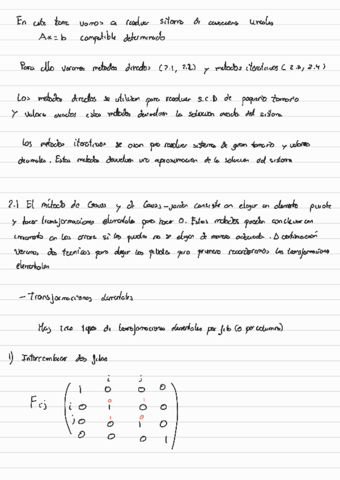 En este tema vamos a resolver sistemas de ecuaciones lineales
Ax = b compatible determinado
Para ello veremos métodos directos (2.1, 2.2) y métodos iterativos (2.3, 2.4)
Los métodos directos se utilizan para resolver S.C.D de pequeño tamaño
y valores exactos estos métodos devuelven la solución exacta del sistema
Los métodos iterativos se usan para resolver sistemas de gran tamaño y valores
decimales. Estos métodos devuelven una aproximación de la solución del sistema
2.1 El método de Gauss y de Gauss-Jordan consiste en elegir un elemento pivote
y hacer transformaciones elementales para hacer 0. Estos métodos pueden conllevar un
incremento en los errores si los pivotes no se eligen de manera adecuada. A continuación
veremos dos técnicas para elegir los pivotes pero primero recordaremos las transformaciones
elementales
- Transformaciones elementales
Hay tres tipos de transformaciones elementales por fila (o por columna)
1) Intercambiar dos filas
i j
Fij
1 0 0 0
i 0 1 0 0
j 0 0 1 0
0 0 0 1